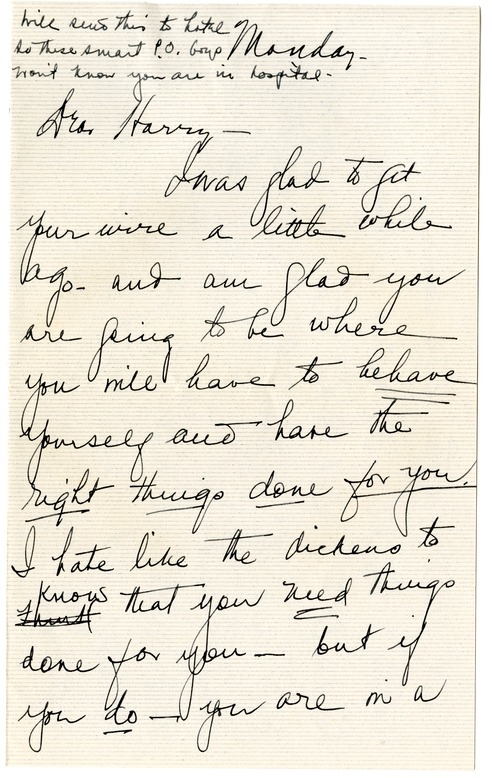 Will send this to hotel
so these smart P.O. boys
won't know you are in hospital-
Monday-
Dear Harry-
I was glad to get
your wire a little while
ago- and am glad you
are going to be where
you will have to behave
yourself and have the
right things done for you.
I hate like the dickens to
know
think that you need things
done for you - but if
you do - you are in a